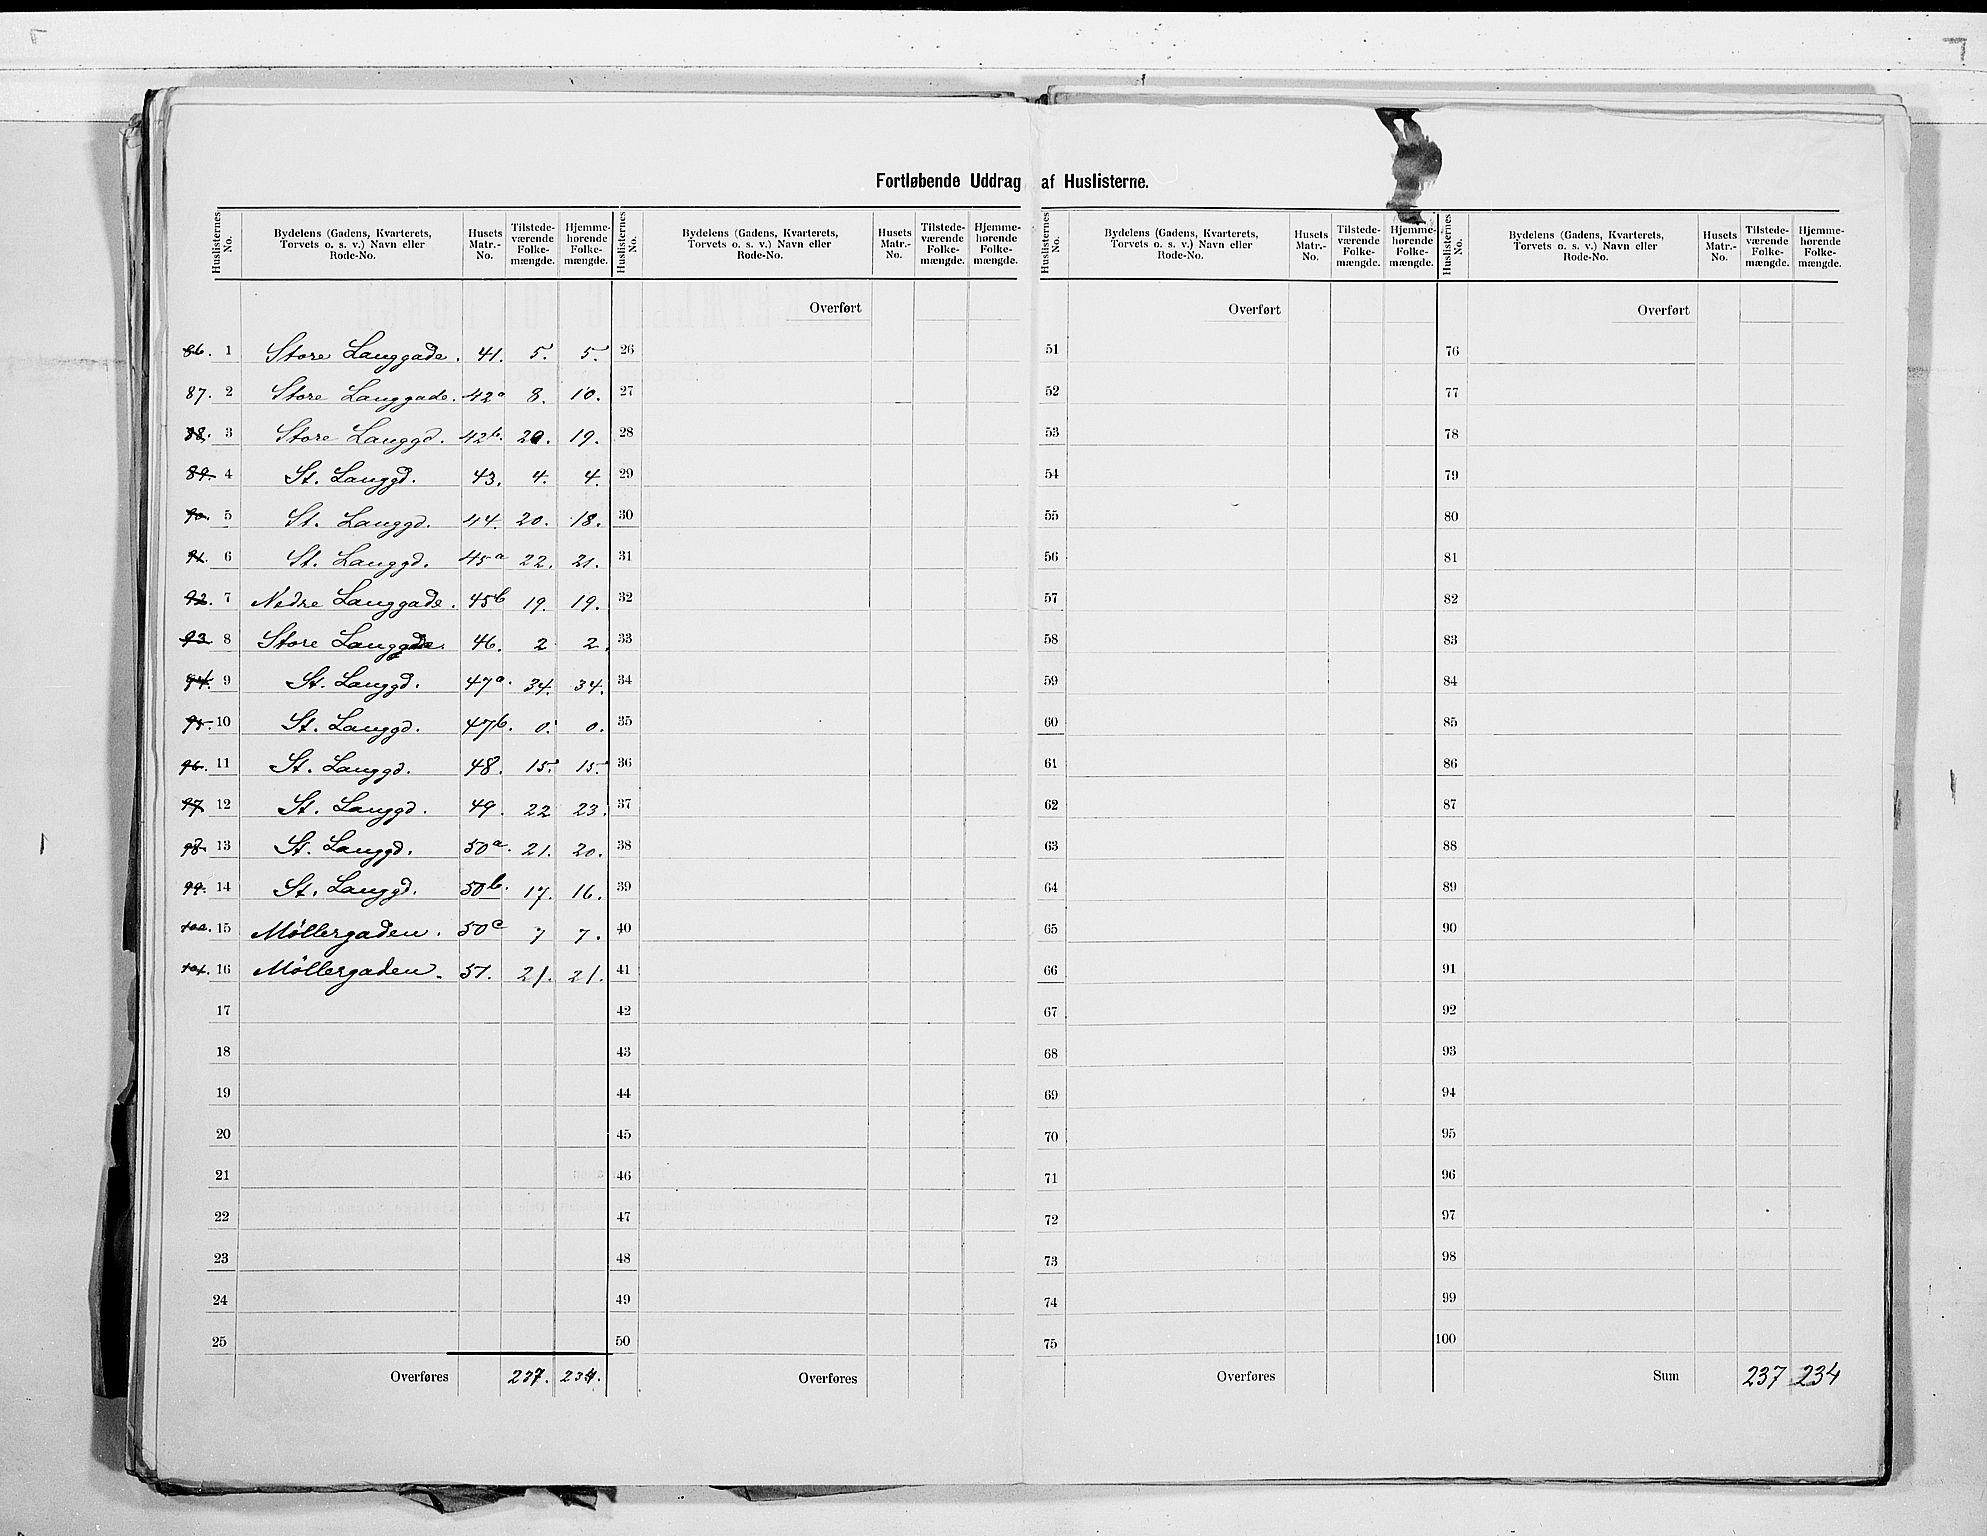 Fortløbende Uddrag af Huslisterne.
Huslisternes No. | Bydelens (Gadens, Kvarterets, Torvets o. s. v.) Navn eller Rode-No. | Husets Matr.-No. | Tilstedeværende Folkemængde. | Hjemmehørende Folkemængde. | Huslisternes No. | Bydelens (Gadens, Kvarterets, Torvets o. s. v.) Navn eller Rode-No. | Husets Matr.-No. | Tilstedeværende Folkemængde. | Hjemmehørende Folkemængde. | Huslisternes No. | Bydelens (Gadens, Kvarterets, Torvets o. s. v.) Navn eller Rode-No. | Husets Matr.-No. | Tilstedeværende Folkemængde. | Hjemmehørende Folkemængde. | Huslisternes No. | Bydelens (Gadens, Kvarterets, Torvets o. s. v.) Navn eller Rode-No. | Husets Matr.-No. | Tilstedeværende Folkemængde. | Hjemmehørende Folkemængde.
Overført Overført Overført
86. 1 Store Langgade. 41. 5. 5. 26 51 76
87. 2 Store Langgade. 42a 8. 10. 27 52 77
88. 3 Store Langgd. 42b. 20. 19. 28 53 78
89. 4 St. Langgd. 43. 4. 4. 29 54 79
90. 5 St. Langgd. 44. 20. 18. 30 55 80
91. 6 St. Langgd. 45a 22. 21. 31 56 81
92. 7 Nedre Langgade. 45b 19. 19. 32 57 82
93. 8 Store Langgade. 46. 2 2. 33 58 83
94. 9 St. Langgd. 47a. 34. 34. 34 59 84
95. 10 St. Langgd. 47b. 0. 0. 35 60 85
96. 11 St. Langgd. 48. 15. 15. 36 61 86
97 12 St. Langgd. 49. 22 23. 37 62 87
98. 13 St. Langgd. 50a. 21. 20. 38 63 88
99. 14 St. Langgd. 50b. 17. 16. 39 64 89
100. 15 Möllergaden. 50c 7 7. 40 65 90
101. 16 Möllergaden. 51. 21. 21. 41 66 91
17 42 67 92
18 43 68 93
19 44 69 94
20 45 70 95
21 46 71 96
22 47 72 97
23 48 73 98
24 49 74 99
25 50 75 100
Overføres 237. 234. Overføres Overføres Sum 237 234